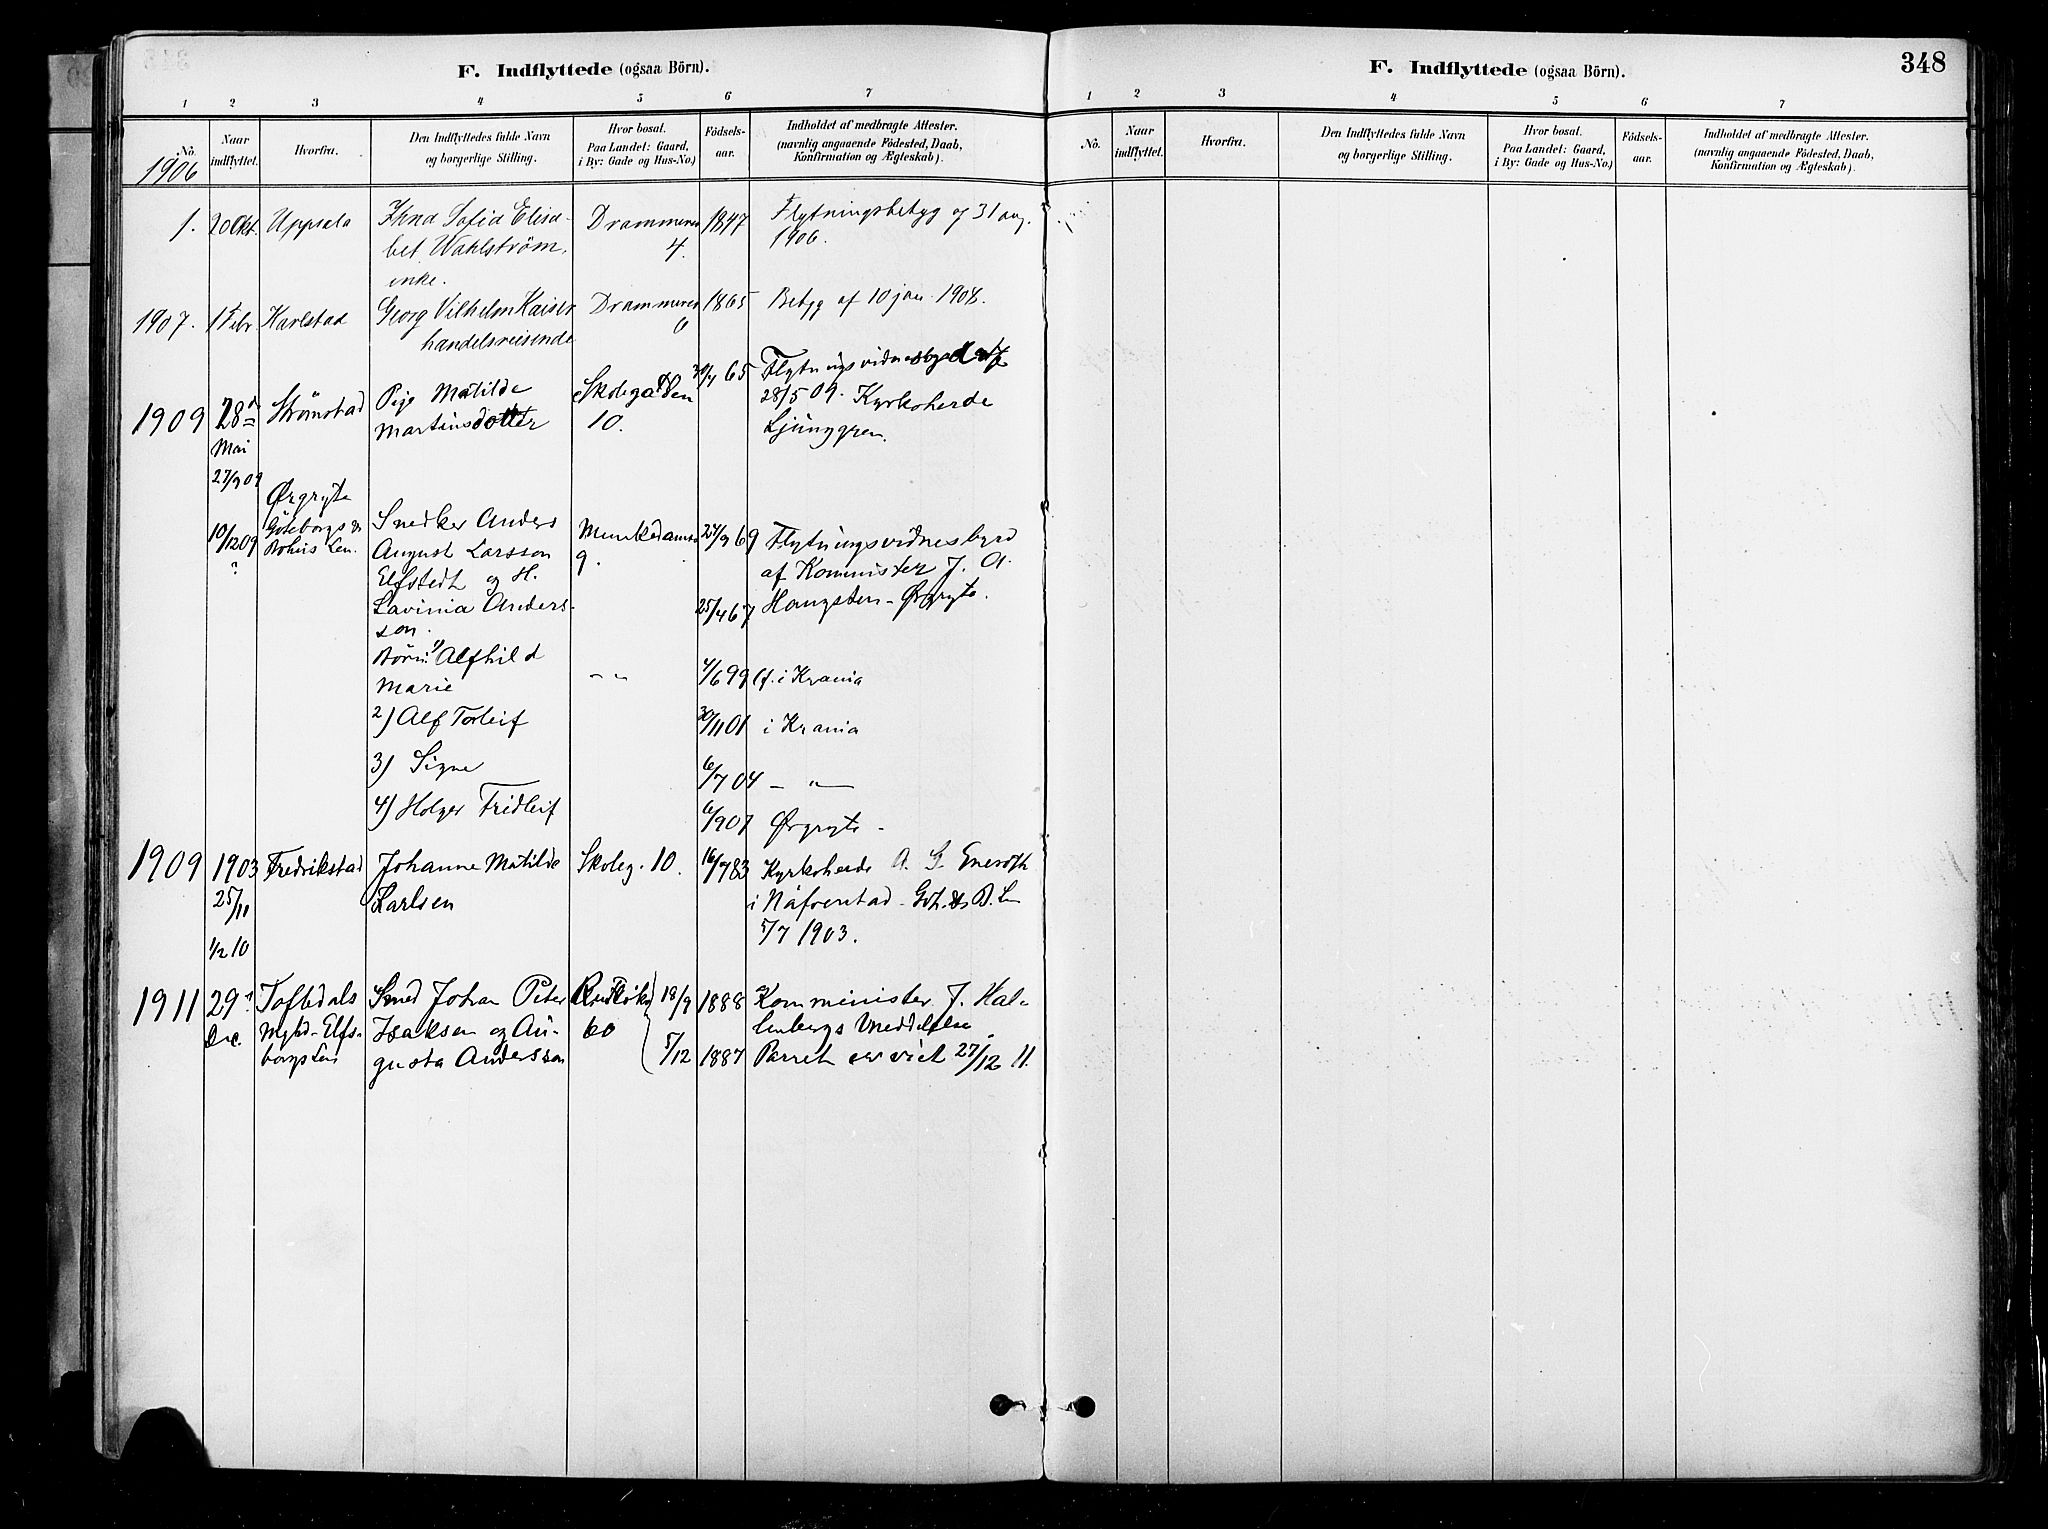 F. Indflyttede (ogsaa Börn).
1 2 3 4 5 6 7
No. Naar indflyttet. Hvorfra. Den Indflyttedes fulde Navn og borgerlige Stilling. Hvor bosat. Paa Landet: Gaard, i By: Gade og Hus-No.) Födsels-aar. Indholdet af medbragte Attester. (navnlig angaaende Födested, Daab, Konfirmation og Ægteskab).
1906
1. 20 Okt. Uppsala Sofia Elisa- Drammensv 1847 Flytningsbetyg og 31 aug.
bet Wahlström, 4. 1906.
enke.
1907. 1 Febr. Karlstad Georg Vilhelm Kaiser Drammensv 1865 Betyg af 10 jan. 1908.
handelsreisende 6
1909 28de Strömstad Matilde Skolegaden 30/4 65 Flytningsvidnesbyrd af
Mai Martinsdotter 10. 28/5 09. Kyrkoherde
Ljunggren.
27/9 09
Ørgryte
10/12 09 Göteborgs og Snedker Anders Munkedamsv 27/9 69 Flytningsvidnesbyrd
? Bohus Len. August Larsson 9. af Kommister J. A.
Elfstedt og H.
Lavinia Anders- 25/4 67 Hougsten - Ørgryte.
son.
Börn: 1) Alfhild 4/6 99 f. i Krania
Marie - " -
2) Alf Torleif 30/11 01 i Krania
3) Signe 6/7 04 - " -
4) Holger Fridleif 6/9 07 Ørgryte -
1909 1903 Fredrikstad Johanne Matilde Skoleg. 10. 16/9 83 Kyrkoherde A. G. Eneroth
25/11 Karlsen i Näfverstad - Göt. & B. Len
1/2 10 5/7 1903.
1911 29de Toftedals Smed Johan Peter 18/9 1888 Komminister J. Hal-
Dec. Elfs- Isaksen og Au- 60 lenbergs Meddelelse.
borgs Len gusta Andersson 5/12 1887 Parret er viet 27/12 11.
F. Indflyttede (ogsaa Börn).
348
1 2 3 4 5 6 7
No. Naar indflyttet. Hvorfra. Den Indflyttedes fulde Navn og borgerlige Stilling. Hvor bosat. Paa Landet: Gaard, i By: Gade og Hus-No.) Födsels-aar. Indholdet af medbragte Attester. (navnlig angaaende Födested, Daab, Konfirmation og Ægteskab).